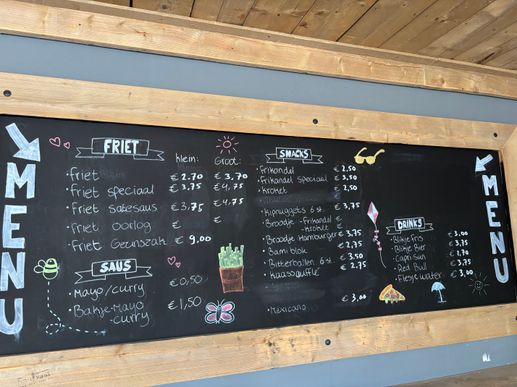 MENU
FRIET
klein: Groot:
• Friet € 2.70 € 3,70
• Friet speciaal € 3,75 € 4,75
• Friet satesaus € 3,75 € 4,75
• Friet oorlog €
• Friet Gezinszak € 9,00
SAUS
• Mayo/curry € 0,50
• Bakje-Mayo € 1,50
-curry
SNACKS
• Frikandel € 2,50
• Frikandel speciaal € 3,50
• Kroket € 2,50
• Kipnuggets 6 st. € 3,75
• Broodje - Frikandel €
- Kroket
• Broodje Hamburger € 3,75
• Bami blok € 2,75
• Bitterballen 6 st € 3,50
• Kaassouflé € 2,75
• Mexicano € 3,00
DRINKS
• Blikje Fris € 3,00
• Blikje Bier € 3,75
• Capri Sun € 2,50
• Red Bull € 3,75
• Flesje water € 3,00
MENU